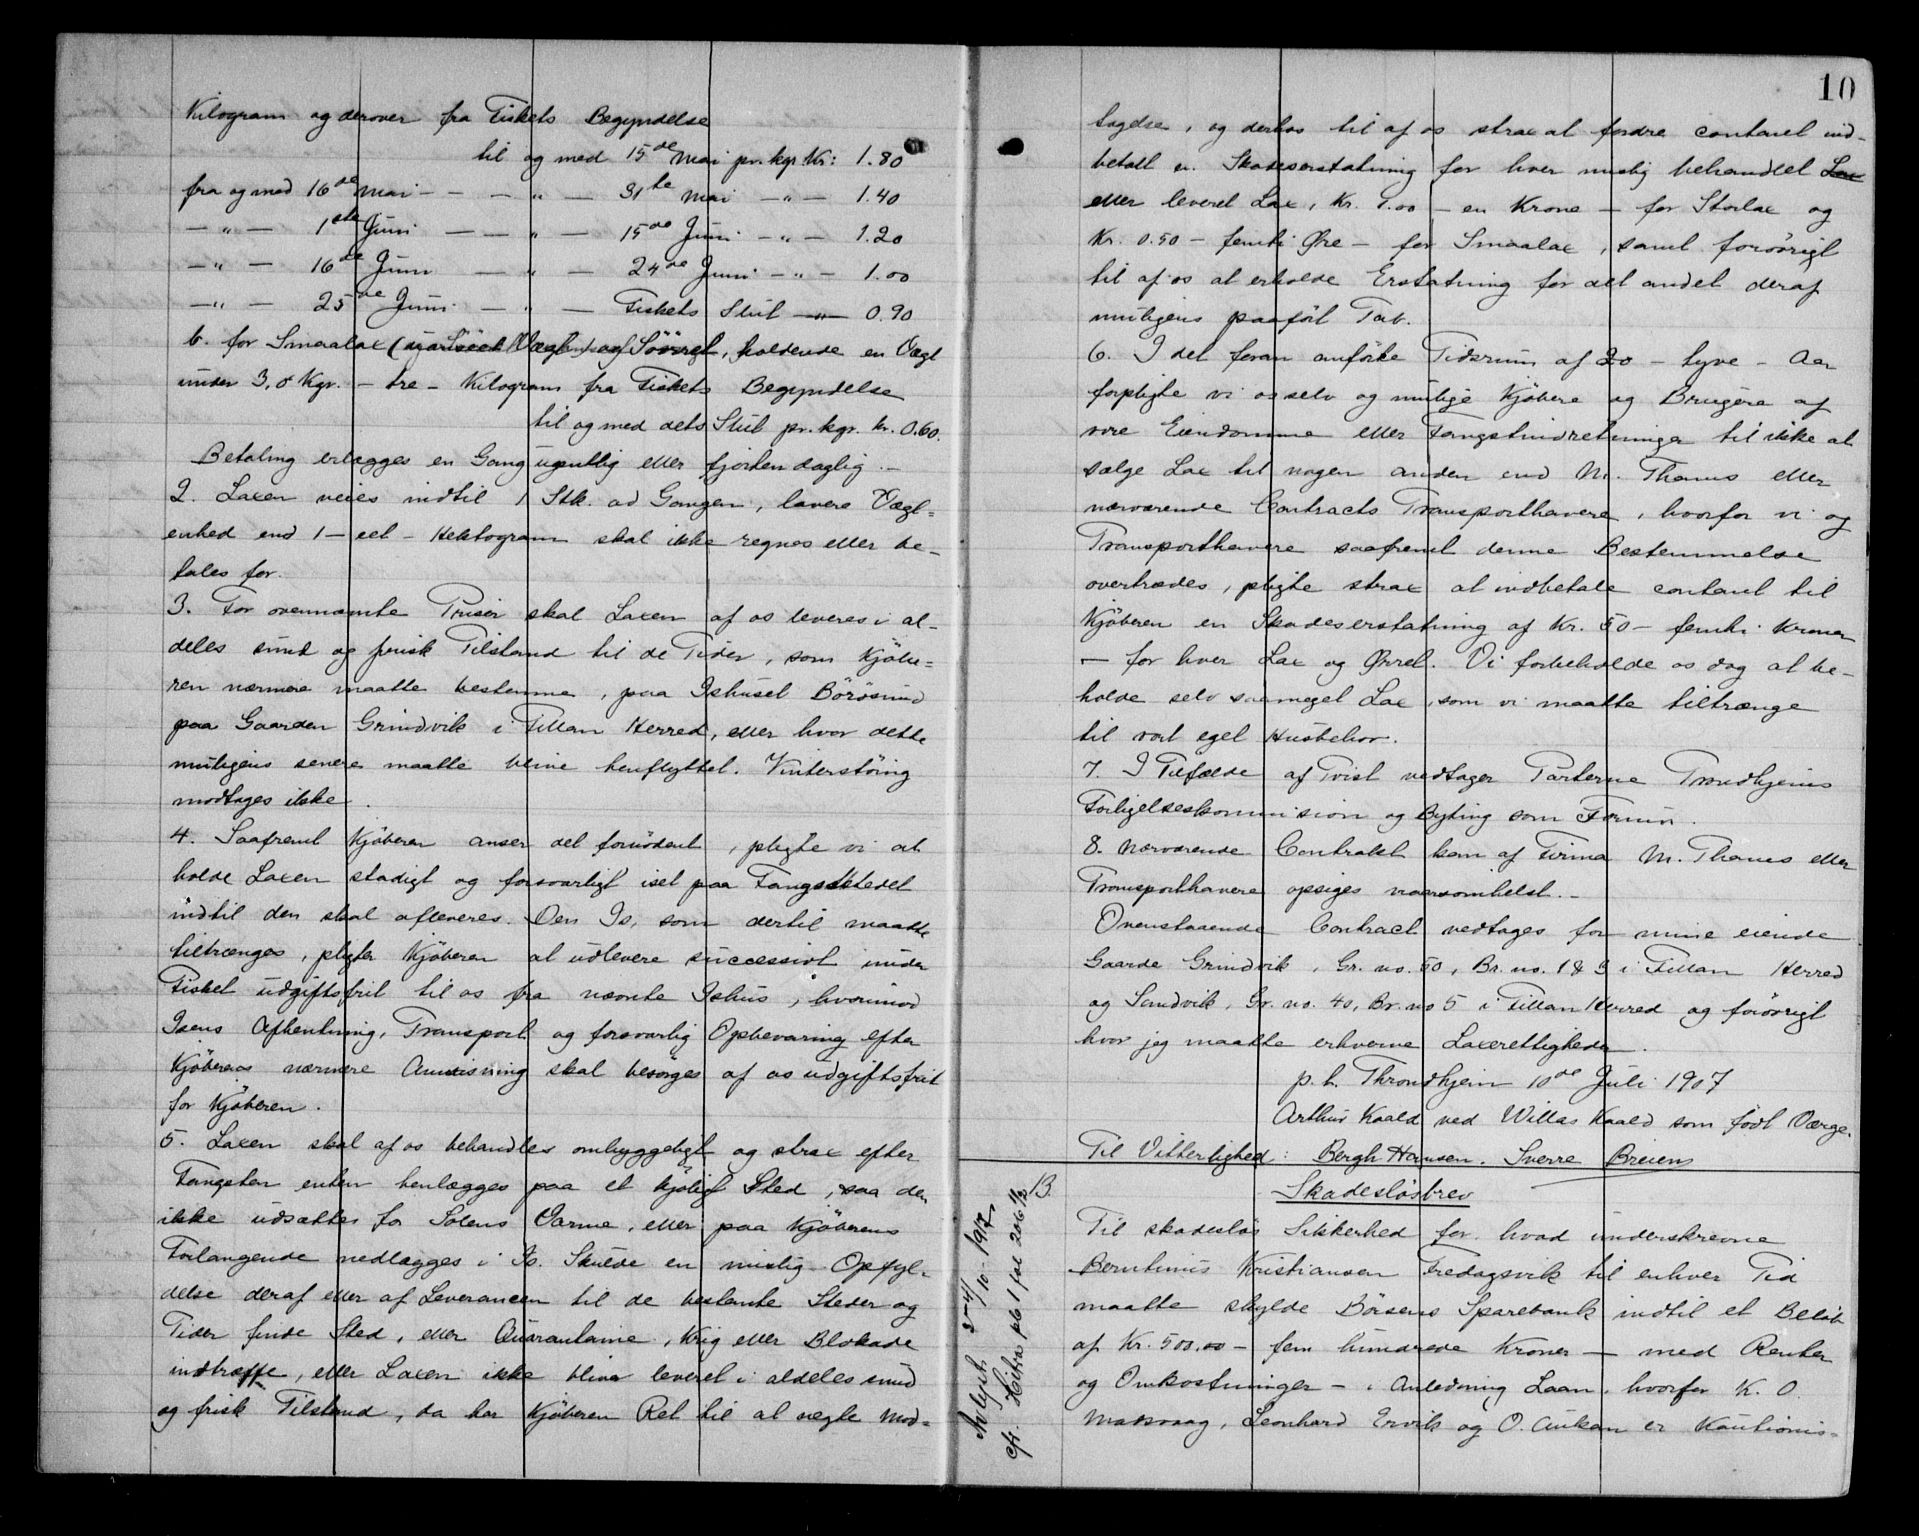 Kilogram og derover fra Fiskets Begyndelse
til og med 15de Mai pr. kgr. Kr: 1.80
fra og med 16de Mai - - - " - 31te Mai - " - 1.40
- " - 1ste Juni - - - " - 15de Juni - " - 1.20
- " - 16de Juni - - " - 24de Juni - " - 1.00
- " - 25de Juni - - " - Fiskets Slut - " - 0.90
b. for Smaalax ( Vægt) og Sörret, holdende en Vægt
under 3,0 Kgr. - tre - Kilogram fra Fiskets Begyndelse
til og med dets Slut pr. kgr. kr. 0.60.
Betaling erlægges en Gang ugentlig eller fjortendaglig. -
2. Laxen veies indtil 1 Stk. ad Gangen, lavere Vægt-
enhed end 1 - eet - Hektogram skal ikke regnes eller be-
tales for.
3. For ovennævnte Priser skal Laxen af os leveres i al-
deles sund og frisk Tilstand til de Tider, som Kjöbe-
ren nærmere maatte bestemme, paa Ishuset Börösund
paa Gaarden Grindvik i Fillan Herred, eller hvor dette
muligens senere maatte blive henflyttet. Vinterstöing
modtages ikke.
4. Saafremt Kjöberen anser det fornödent, pligte vi at
holde Laxen stadigt og forsvarligt iset paa Fangststedet
indtil den skal afleveres. Den Is, som dertil maatte
tiltrænges, pligter Kjöberen at udlevere successivt under
Fisket udgiftsfrit til os fra nævnte Ishus, hvorimod
Isens Afhentning, Transport og forsvarlig Opbevaring efter
Kjöberens nærmere Anvisning skal besörges af os udgiftsfrit
for Kjöberen.
5. Laxen skal af os behandles omhyggeligt og strax efter
Fangsten enten henlægges paa et kjöligt Sted, saa den
ikke udsættes for Solens Varme, eller paa Kjöberens
Forlangende nedlægges i Is. Skulde en mislig Opfyl-
delse deraf eller af Leverancen til de bestemte Steder og
Tider finde Sted, eller Quarantaine, Krig eller Blokade
indtræffe, eller Laxen ikke bliver leveret i aldeles sund
og frisk Tilstand, da har Kjöberen Ret til at negte Mod-
10
tagelse, og derhos til af os strax at fordre contant ind-
betalt en Skadeserstatning for hver mislig behandlet Lax
eller leveret Lax, Kr. 1.00 - en Krone - for Storlax og
Kr. 0.50 - femti Øre - for Smaalax, samt forövrigt
til af os at erholde Erstatning for det andet deraf
muligens paafört Tab.
6. I det foran anförte Tidsrum af 20 - tyve - Aar
forpligte vi os selv og mulige Kjöbere og Brugere af
vore Eiendomme eller Fangstindretninger til ikke at
sælge Lax til nogen anden end M. Thams eller
nærværende Contracts Transporthavere, hvorfor vi og
Transporthavere saafremt denne Bestemmelse
overtrædes, pligte strax at indbetale contant til
Kjöberen en Skadeserstatning af Kr. 50 - femti Kroner
- for hver Lax og Ørret. Vi forbeholde os dog at be-
holde selv saameget Lax, som vi maatte tiltrænge
til vort eget Husbehov.
7. I Tilfælde af Tvist vedtager Parterne Trondhjems
Forligelseskommission og Byting som Forum.
8. Nærværende Contrakt kan af Firma M. Thams eller
Transporthavere opsiges naarsomhelst. -
Ovenstaaende Contract vedtages for mine eiende
Gaarde Grindvik, Gr. no. 50, Br. no. 1 & 3 i Fillan Herred
og Sandvik, Gr. no. 40, Br. no 5 i Fillan Herred og forövrigt
hvor jeg maatte erhverve Laxerettigheder.
p. t. Throndhjem 10de Juli 1907
Arthur Kaald ved Willas Kaald som födt Værge.
Til Vitterlighed: Bergh Hansen. Sverre Breiens
13.
Skadeslösbrev
Til skadeslös Sikkerhed for hvad underskrevne
Berntinus Kristiansen Fredagsvik til enhver Tid
maatte skylde Börsens Sparebank indtil et Belöb
af Kr. 500,00 - fem hundrede Kroner - med Renter
og Omkostninger - i Anledning Laan, hvorfor K. O.
Maksvaag, Leonhard Ervik og O. Aukan er Kautionis-
Avlyst 10- 1917.
cfr. Hitra pb 1 fol 206